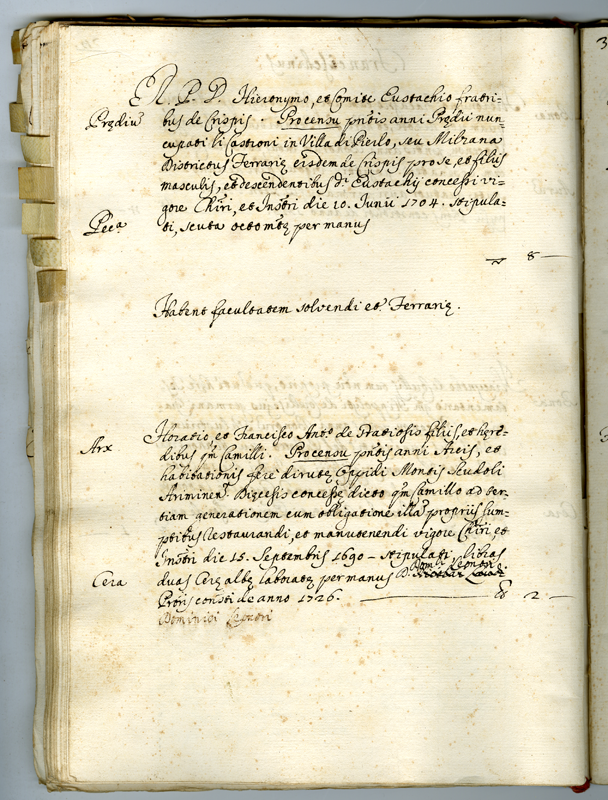 N. P. D. Hieronymo, et Comite Eustachio fratri=
Prędiũ bus de Crispis. Pro censu pntis anni Prędii nun=
cupati li Castioni in Villa di Pierlo, seu Milzana
Districtus Ferrarię eisdem de Crispis pro se, et filiis
masculis, et descendentibus d.i Eustachij concessi vi=
gore Chiri, et Instri die 10. Junii 1704. stipula=
Pec.a ti, scuta octo mtę per manus
8 —
Habent facultatem solvendi et.t Ferrarię.
Arx Horatio, et Francisco Ant.o de Gratiosis filiis, et hęrę=
dibus qm Camilli. Pro censu pntis anni Arcis, et
habitationis ferè dirutę Oppidi Montis Scudoli
Ariminen. Dięcesis concessę dicto qm Camillo ad ter=
tiam generationem cum obligatione illa propriis sum=
ptibus restaurandi, et manutenendi vigore Chiri, et
Instri die 15. Septembris 1690 - stipulati, libras
Cera duas Cerę albę laboratę per manus D. Dom.ci Leonori
Proijs consti de anno 1726. — 2 —
Dominici Leonori